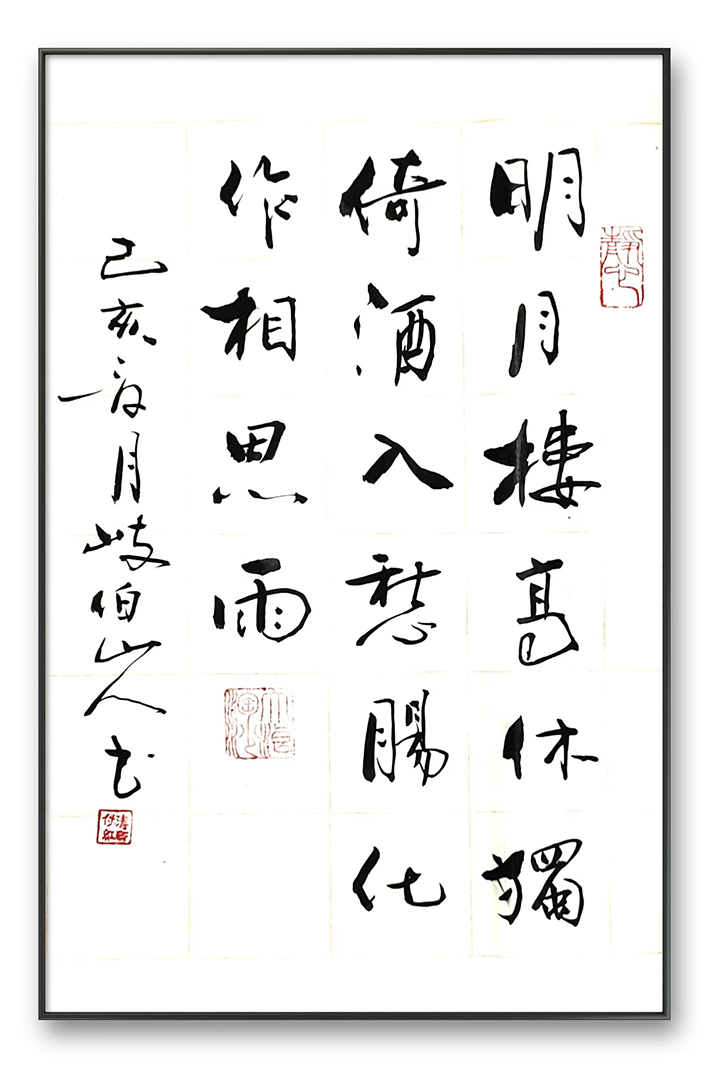 明月樓高休獨
倚酒入愁腸化
作相思雨
己亥月岐伯山人书